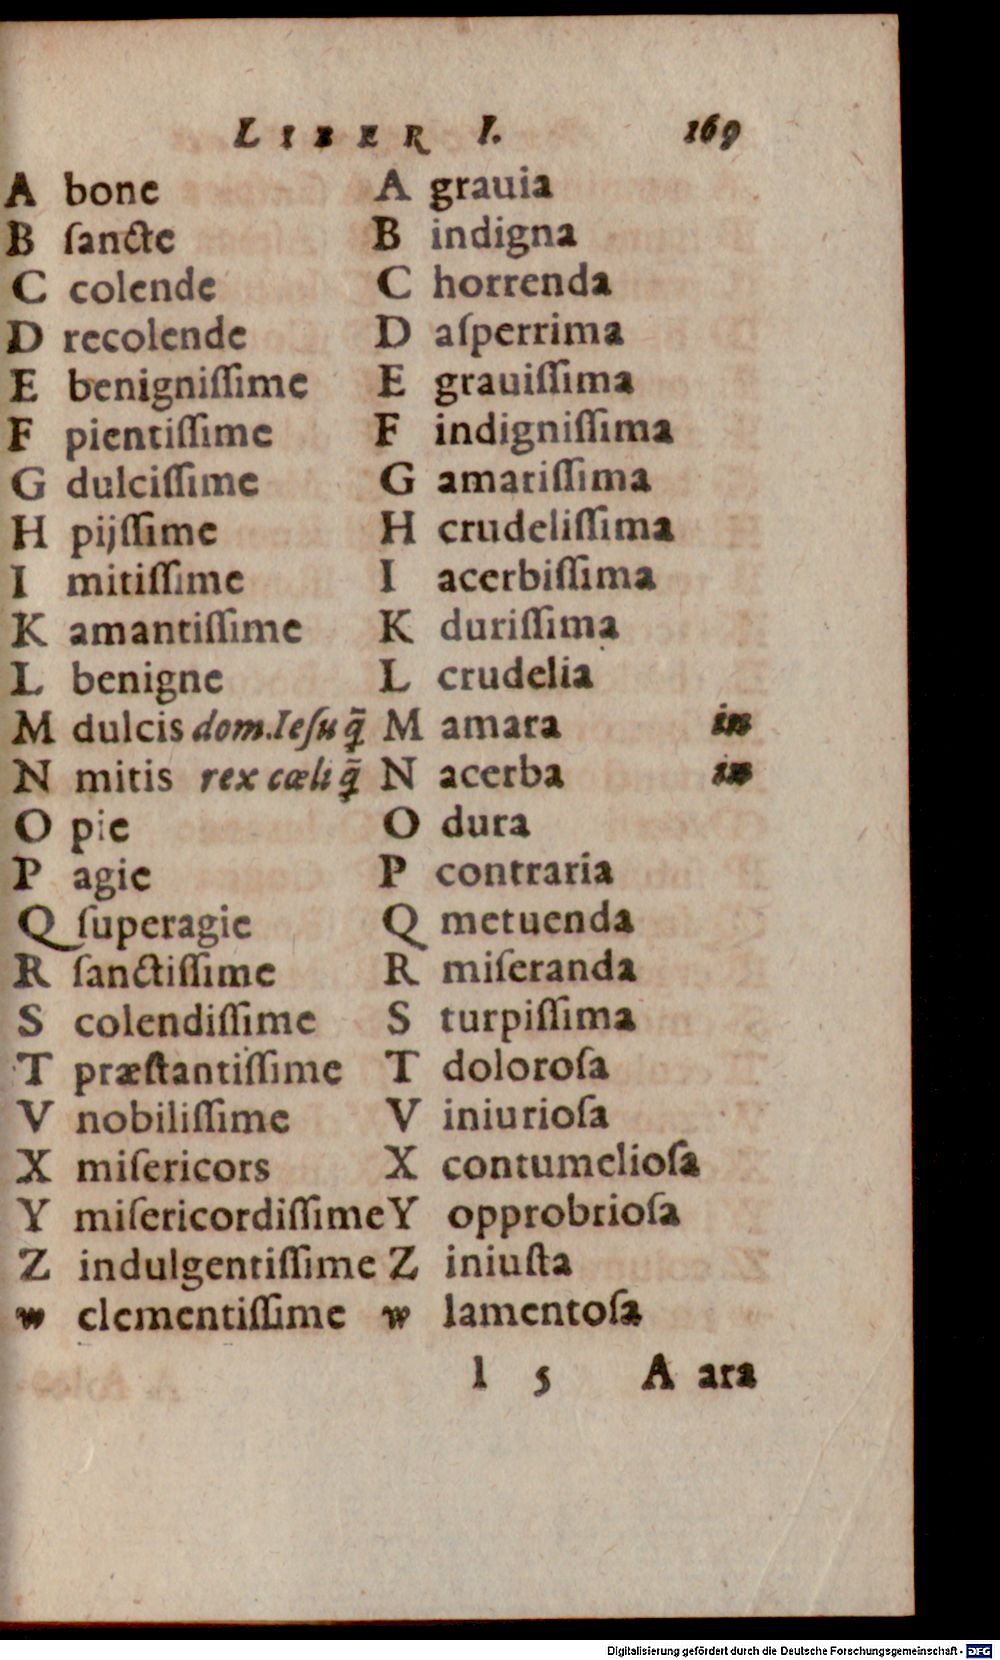 LIBER I. 169
A bone
B ſancte
C colende
D recolende
E benigniſſime
F pientiſſime
G dulciſſime
H pijſſime
I mitiſſime
K amantiſſime
L benigne
M dulcis dom. Ieſu q̃
N mitis rex cæli q̃
O pie
P agie
Q ſuperagie
R ſanctiſſime
S colendiſſime
T præſtantiſſime
V nobiliſſime
X miſericors
Y miſericordiſſime
Z indulgentiſſime
w clementiſſime
A grauia
B indigna
C horrenda
D aſperrima
E grauiſſima
F indigniſſima
G amariſſima
H crudeliſſima
I acerbiſſima
K duriſſima
L crudelia
M amara in
N acerba in
O dura
P contraria
Q metuenda
R miſeranda
S turpiſſima
T doloroſa
V iniurioſa
X contumelioſa
Y opprobrioſa
Z iniuſta
w lamentoſa
l 5 A ara
Digitalisierung gefördert durch die Deutsche Forschungsgemeinschaft - DFG